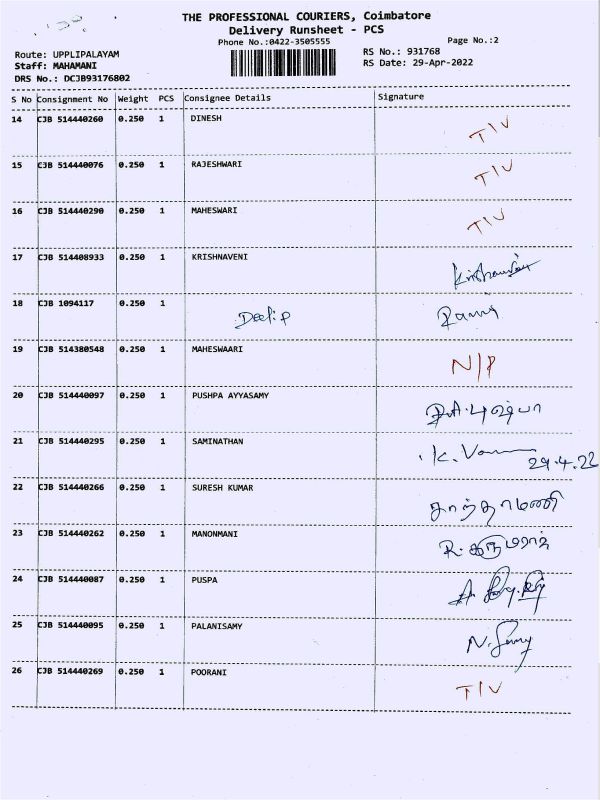 THE PROFESSIONAL COURIERS, Coimbatore
Delivery Runsheet - PCS
Phone No.:0422-3505555
Page No.:2
Route: UPPLIPALAYAM
RS No.: 931768
Staff: MAHAMANI
RS Date: 29-Apr-2022
DRS No.: DCJB93176802
S No Consignment No Weight PCS Consignee Details Signature
14 CJB 514440260 0.250 1 DINESH T/V
15 CJB 514440076 0.250 1 RAJESHWARI T/V
16 CJB 514440290 0.250 1 MAHESWARI T/V
17 CJB 514408933 0.250 1 KRISHNAVENI
18 CJB 1094117 0.250 1 Deelip
19 CJB 514380548 0.250 1 MAHESWAARI N/P
20 CJB 514440097 0.250 1 PUSHPA AYYASAMY P.A.புஷ்பா
21 CJB 514440295 0.250 1 SAMINATHAN 29.4.22
22 CJB 514440266 0.250 1 SURESH KUMAR சாந்தாமணி
23 CJB 514440262 0.250 1 MANONMANI
24 CJB 514440087 0.250 1 PUSPA
25 CJB 514440095 0.250 1 PALANISAMY
26 CJB 514440269 0.250 1 POORANI T/V